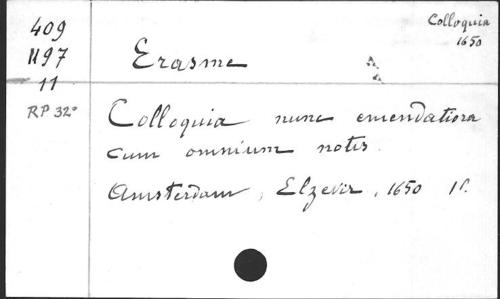 Colloquia
1650
409
N97
11
RP 32°
Erasme
Colloquia nunc emendatiora
cum omnium notis.
Amsterdam, Elzevir, 1650